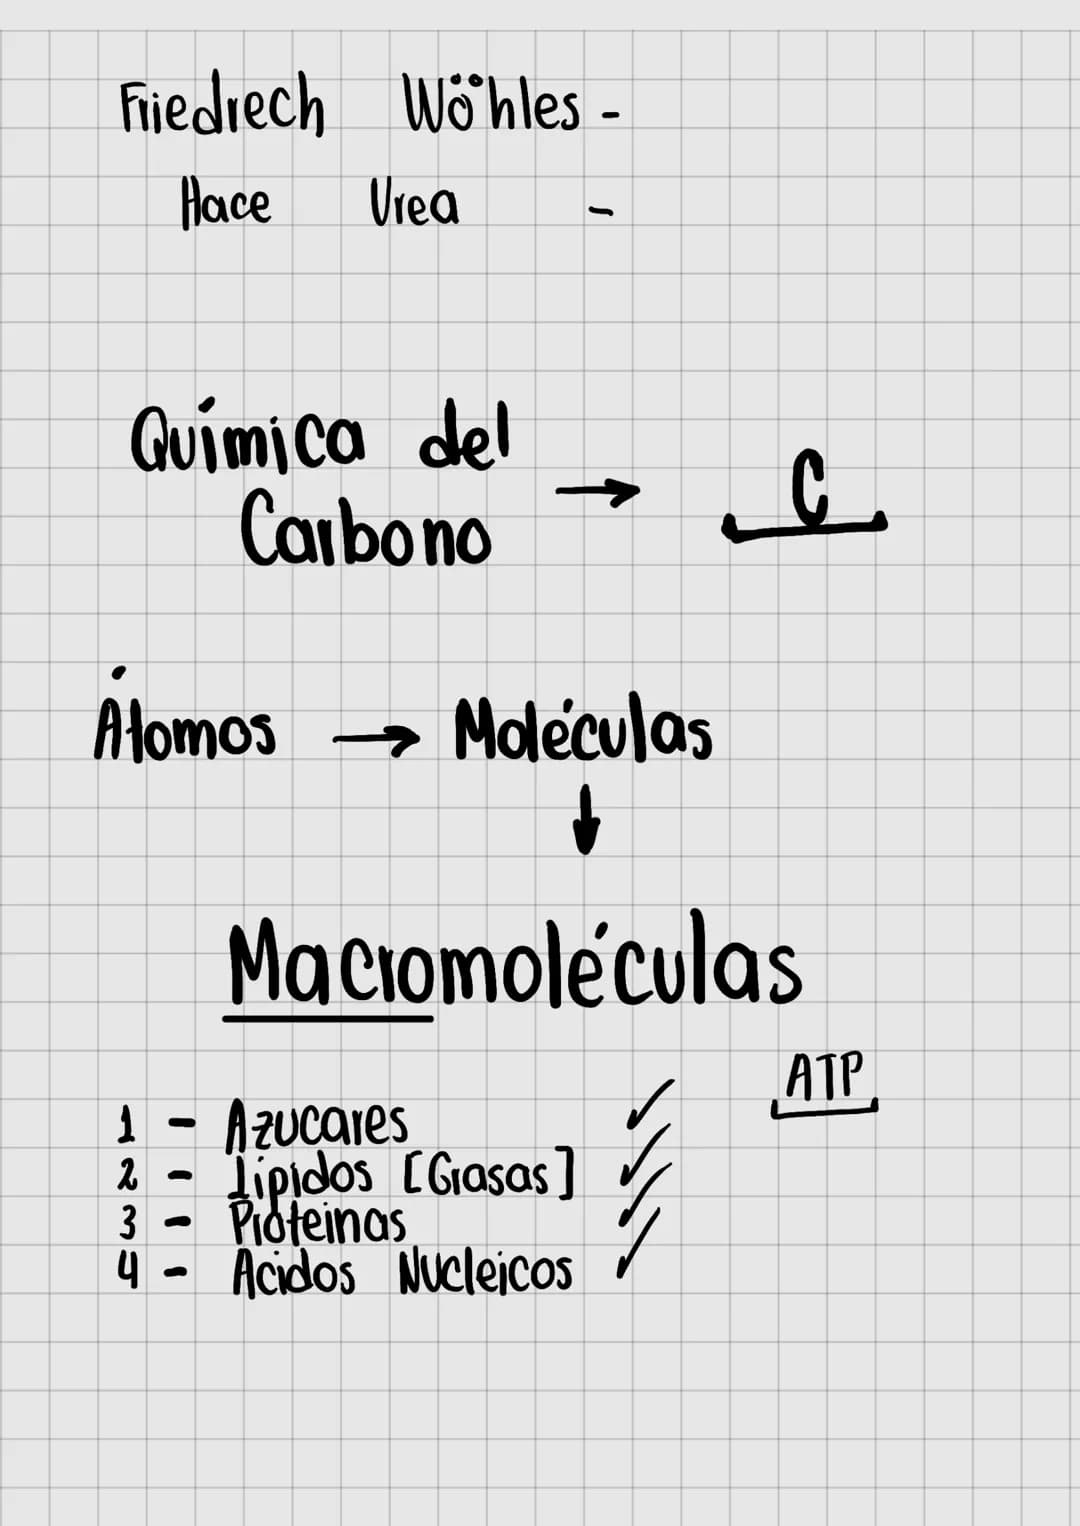 Friedrech Wöhles -
Hace Urea -
Química del
Carbono → C
Átomos → Moléculas
↓
Macromoléculas
ATP
1 - Azucares ✓
2 - Lipidos [Grasas] ✓
3 - Proteinas ✓
4 - Acidos Nucleicos ✓